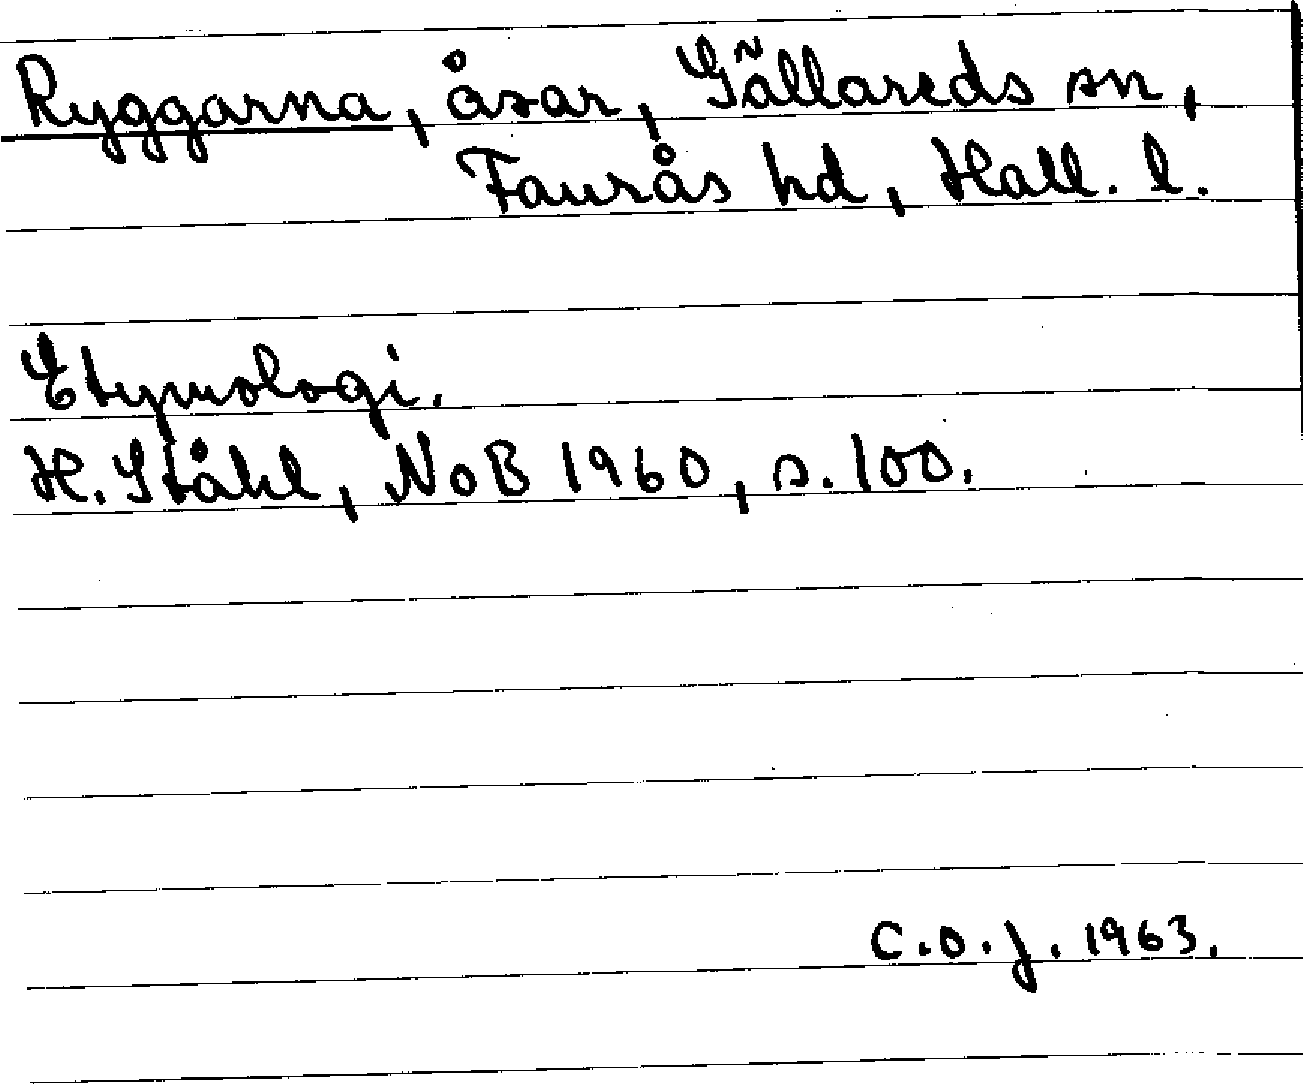 Ryggarna, åsar, Gällareds sn,
Faurås hd, Hall. l.
Etymologi.
H. Ståhl, NoB 1960, s. 100.
C.O.J. 1963.